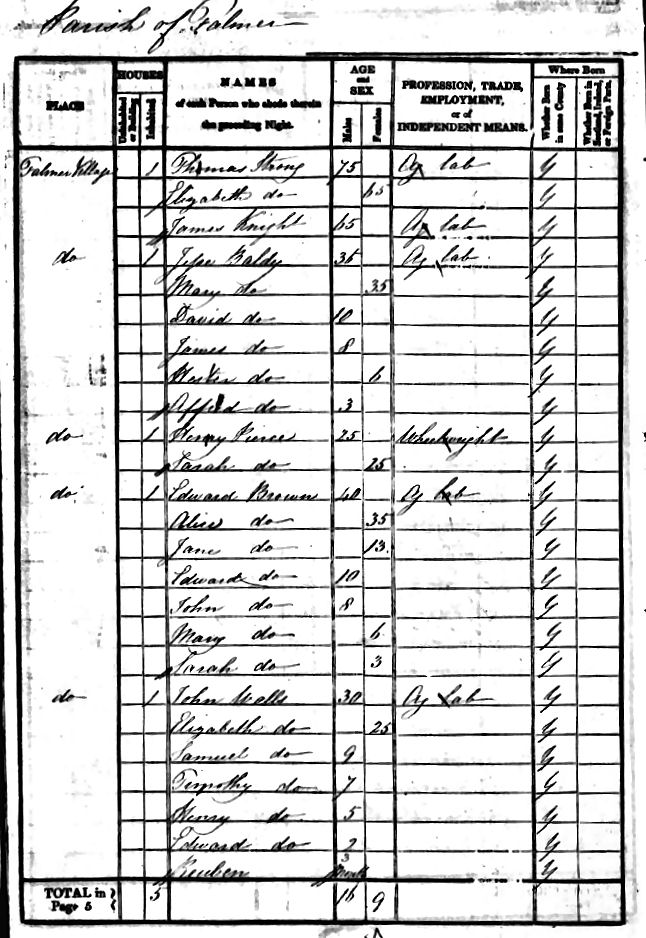 Parish of Falmer
PLACE
HOUSES
Uninhabited or Building
Inhabited
NAMES
of each Person who abode therein
the preceding Night.
AGE
and
SEX
Males
Females
PROFESSION, TRADE,
EMPLOYMENT,
or of
INDEPENDENT MEANS.
Where Born
Whether Born in same County
Whether Born in Scotland, Ireland, or Foreign Parts.
Falmer Village 1 Thomas Strong 75 Ag lab y
Elizabeth do 65 y
James Knight 65 Ag lab y
do 1 Jesse Baldy 35 Ag lab y
Mary do 35 y
David do 10 y
James do 8 y
Hester do 6 y
Alfred do 3 y
do 1 Henry Pierce 25 Wheelwright y
Sarah do 25 y
do 1 Edward Brown 40 Ag lab y
Alice do 35 y
Jane do 13 y
Edward do 10 y
John do 8 y
Mary do 6 y
Sarah do 3 y
do 1 John Wells 30 Ag lab y
Elizabeth do 25 y
Samuel do 9 y
Timothy do 7 y
Henry do 5 y
Edward do 2 y
Reuben 3 y
TOTAL in Page 5 5 16 9